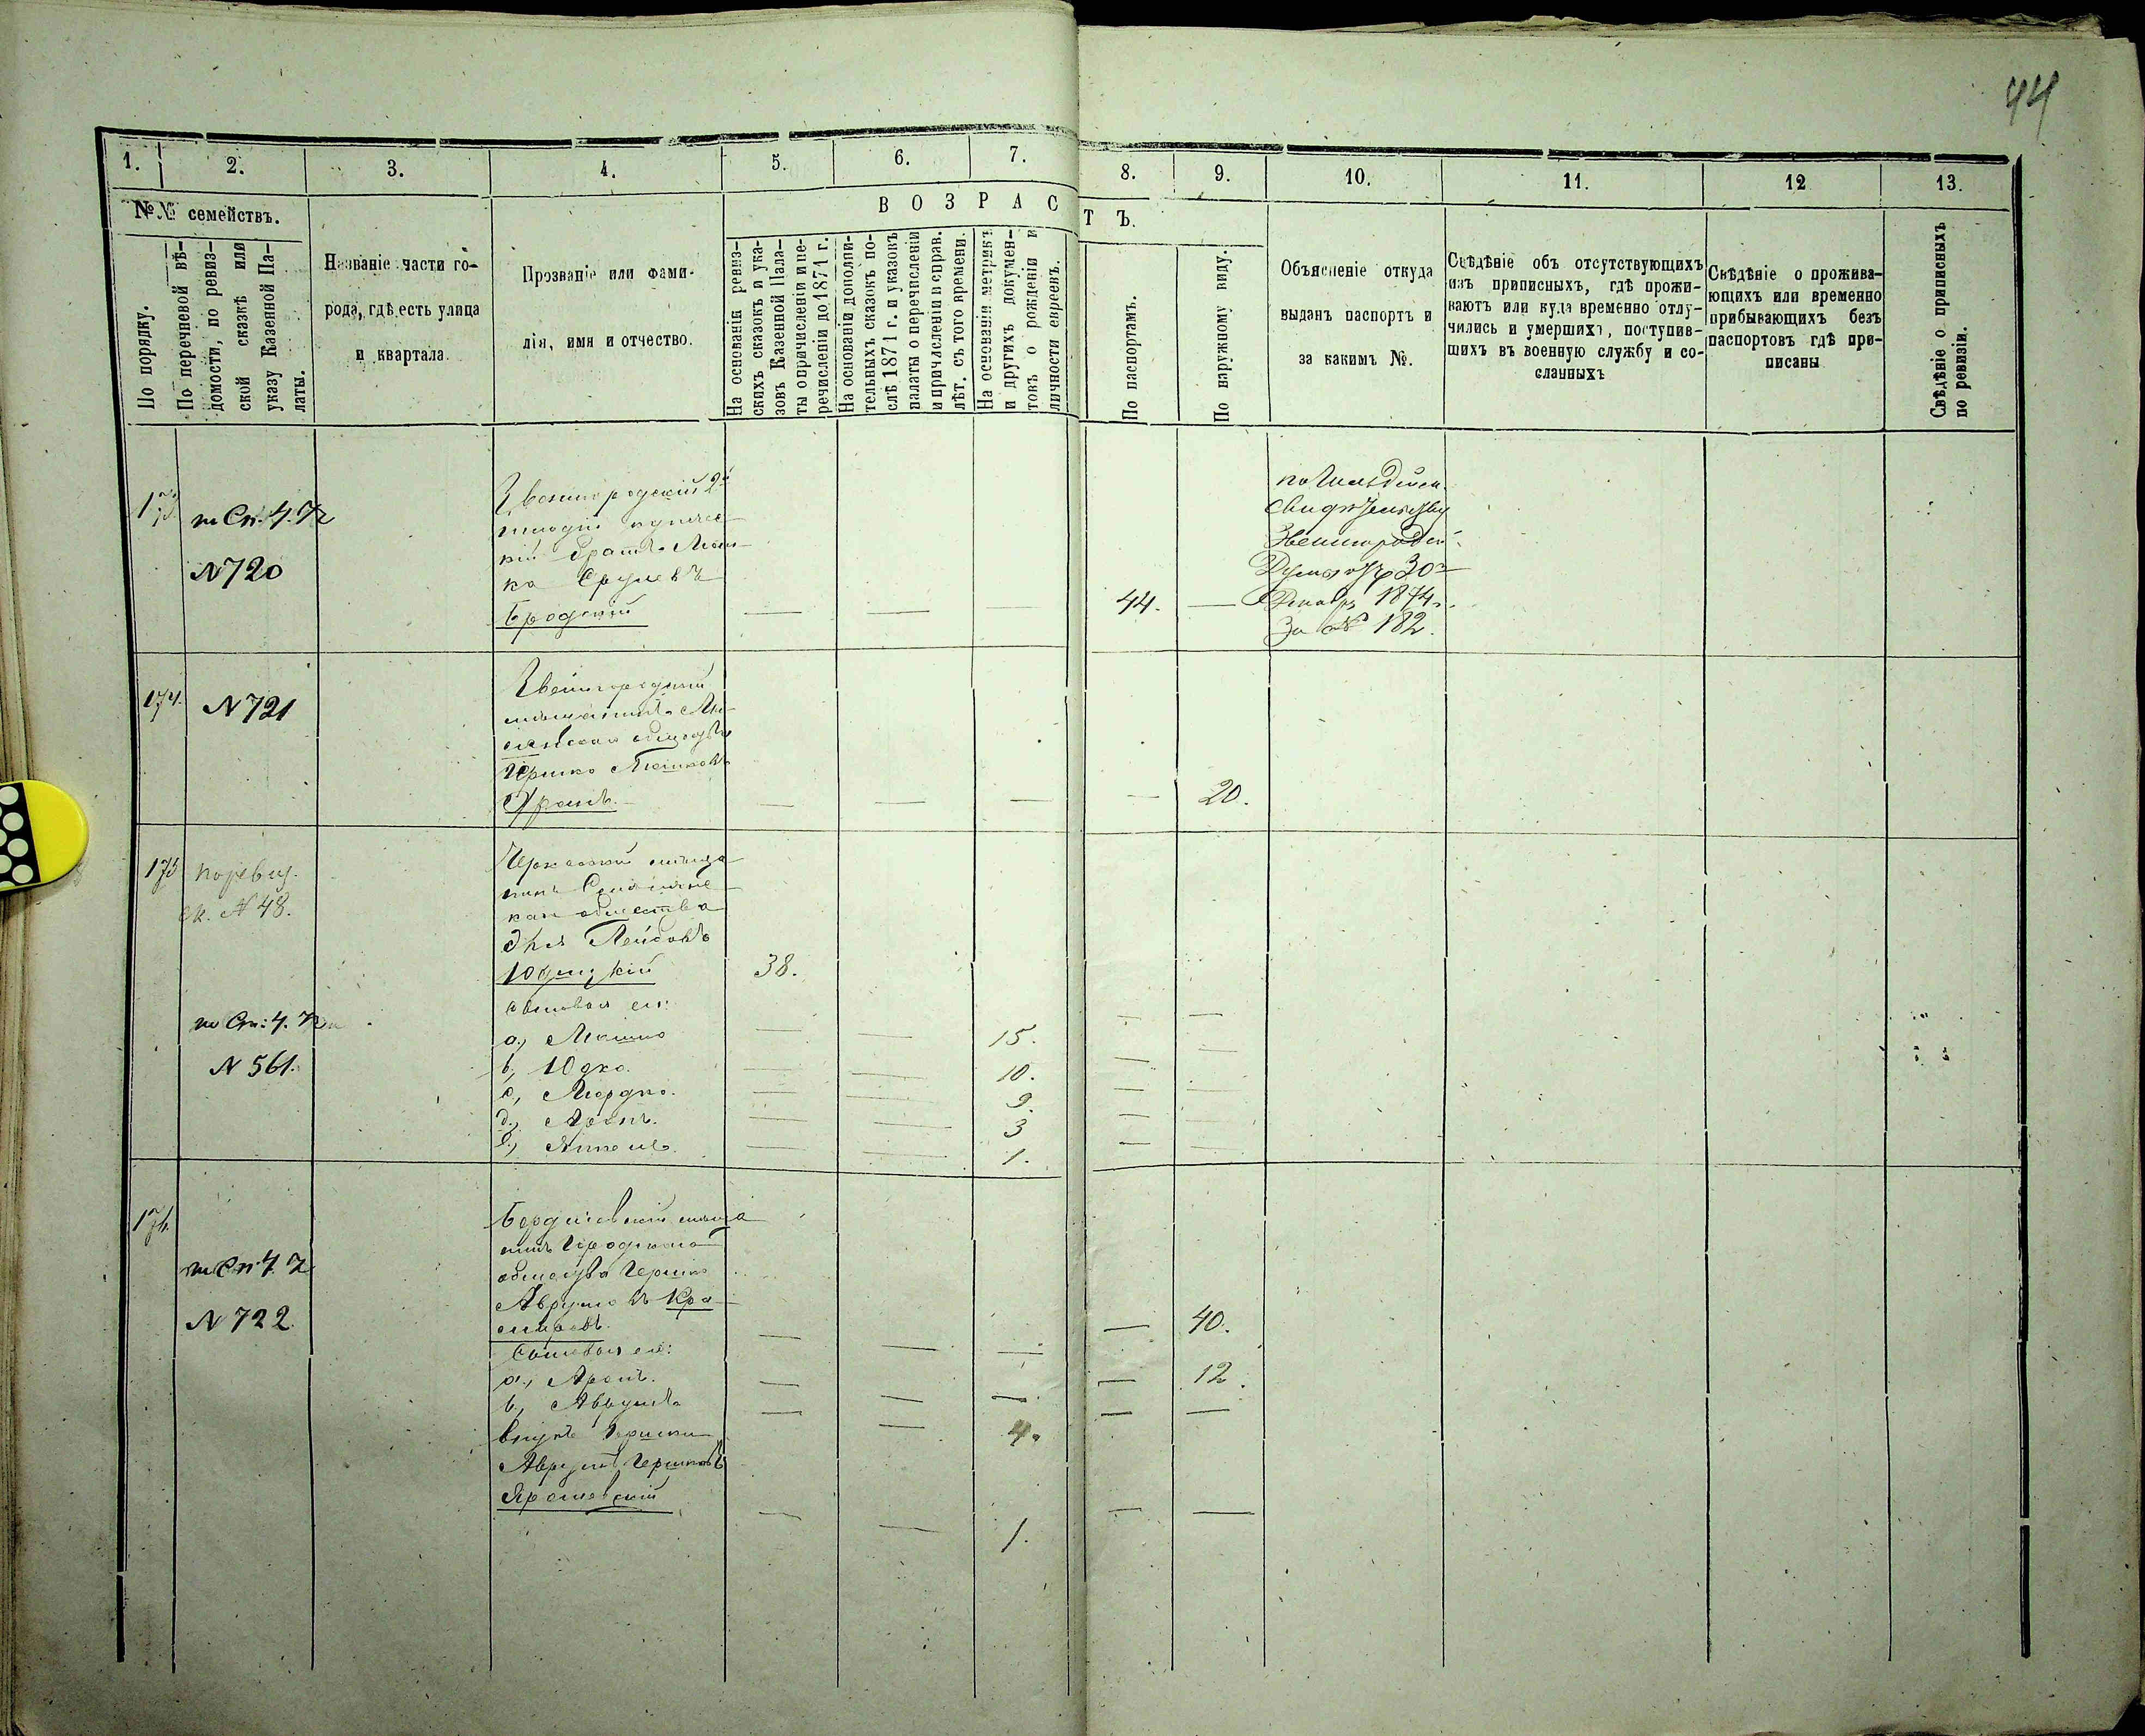 44
1.
2.
3.
4.
5.
6.
7.
8.
9.
10.
11.
12
13.
№№ семействъ.
По порядку.
По перечневой вѣ-
домости, по ревиз-
ской сказкѣ или
указу Казенной Па-
латы.
Названіе части го-
рода, гдѣ есть улица
и квартала.
Прозваніе или фами-
лія, имя и отчество.
ВОЗРАСТЪ.
На основаніи ревиз-
скихъ сказокъ и ука-
зовъ Казенной Пала-
ты о причисленіи и пе-
речисленіи до 1871 г.
На основаніи дополни-
тельныхъ сказокъ по-
слѣ 1871 г. и указовъ
палаты о перечисленіи
и причисленіи и справ.
лѣт. съ того времени.
На основаніи метрикъ
и другихъ докумен-
товъ о рожденіи и
личности евреевъ.
По паспортамъ.
По наружному виду.
Объясненіе откуда
выданъ паспортъ и
за какимъ №.
Свѣдѣніе объ отсутствующихъ
изъ приписныхъ, гдѣ прожи-
ваютъ или куда временно отлу-
чились и умершихъ, поступив-
шихъ въ военную службу и со-
сланныхъ
Свѣдѣніе о прожива-
ющихъ или временно
прибывающихъ безъ
паспортовъ гдѣ при-
писаны
Свѣдѣніе о приписныхъ
по ревизіи.
173
по Сп. Ч. 72
N 720
Звенигородскій 2й
гильдіи купечес-
кій братъ Мош-
ко Срулевъ
Бродскій
— — — 44. —
по Гильдейск.
Свидѣтельству
Звенигородск.
Думы отъ 30го
Декабр 1874 г.
За № 182.
174.
N 721
Звенигородскій
мѣщанинъ
общества
Гершко Мошковъ
— — — — 20.
175
по ревиз.
ск. N 48.
Черкасскій мѣща
нинъ
каго общества
Лейбовъ
38.
Сыновья его:
по Сп. Ч. 72
N 561.
а, Мошко — — 15. — —
b, Юдко. — — 10. — —
с, Мордко. — — 9. — —
d, — — 3 — —
е, — — 1. — —
176
по Сп. Ч. 7
N 722
Бердичевскій мѣща
нинъ
общества Гершко
Аврумовъ
— — — — 40.
Сыновья его:
а, Аронъ. — — — — 12.
b, Аврумъ — — 4. — —
внукъ Гершки
Аврумъ Гершковъ
Ярошевскій
— — 1. — —